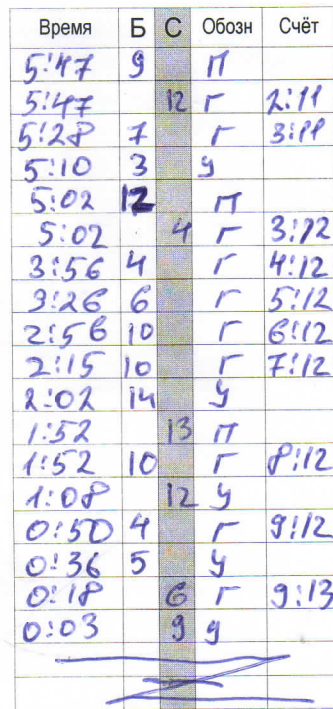 Время Б С Обозн Счёт
5:47 9 П
5:47 12 Г 2:11
5:28 7 Г 3:11
5:10 3 У
5:02 12 П
5:02 4 Г 3:12
3:56 4 Г 4:12
3:26 6 Г 5:12
2:56 10 Г 6:12
2:15 10 Г 7:12
2:02 14 У
1:52 13 П
1:52 10 Г 8:12
1:08 12 У
0:50 4 Г 9:12
0:36 5 У
0:18 6 Г 9:13
0:03 9 У